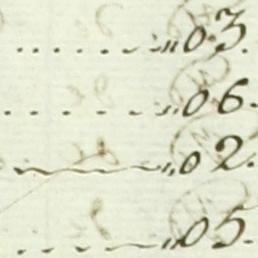 ....„03.
....„06.
„02.
...„05.